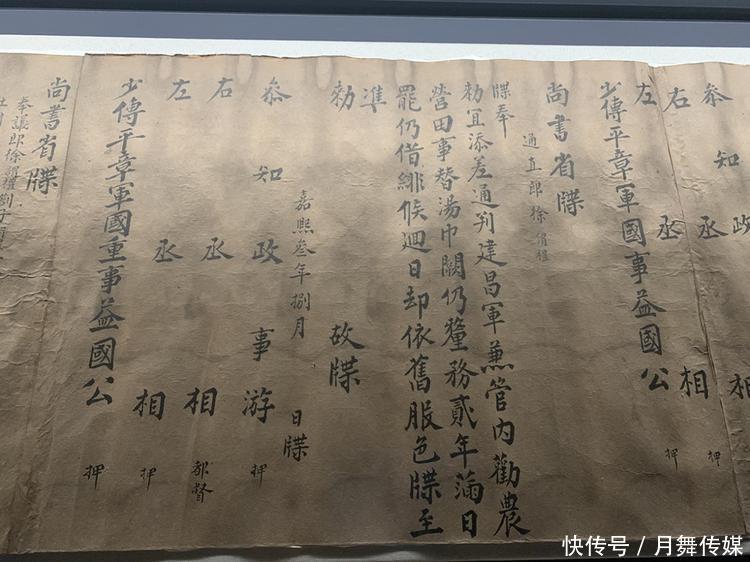 叅知政
右丞相押
左丞相押
少傅平章軍國事益國公
尚書省牒
通直郎徐謂禮
牒奉
勑宜添差通判建昌軍兼管内勸農
營田事替湯巾闕仍釐務貳年滿日
罷仍借緋候廻日却依舊服色牒至
準
勑故牒
嘉熙叁年捌月日牒
叅知政事游押
右丞相都督
左丞相押
少傅平章軍國重事益國公押
尚書省牒
奉議郎徐謂禮
快传号 / 月舞传媒